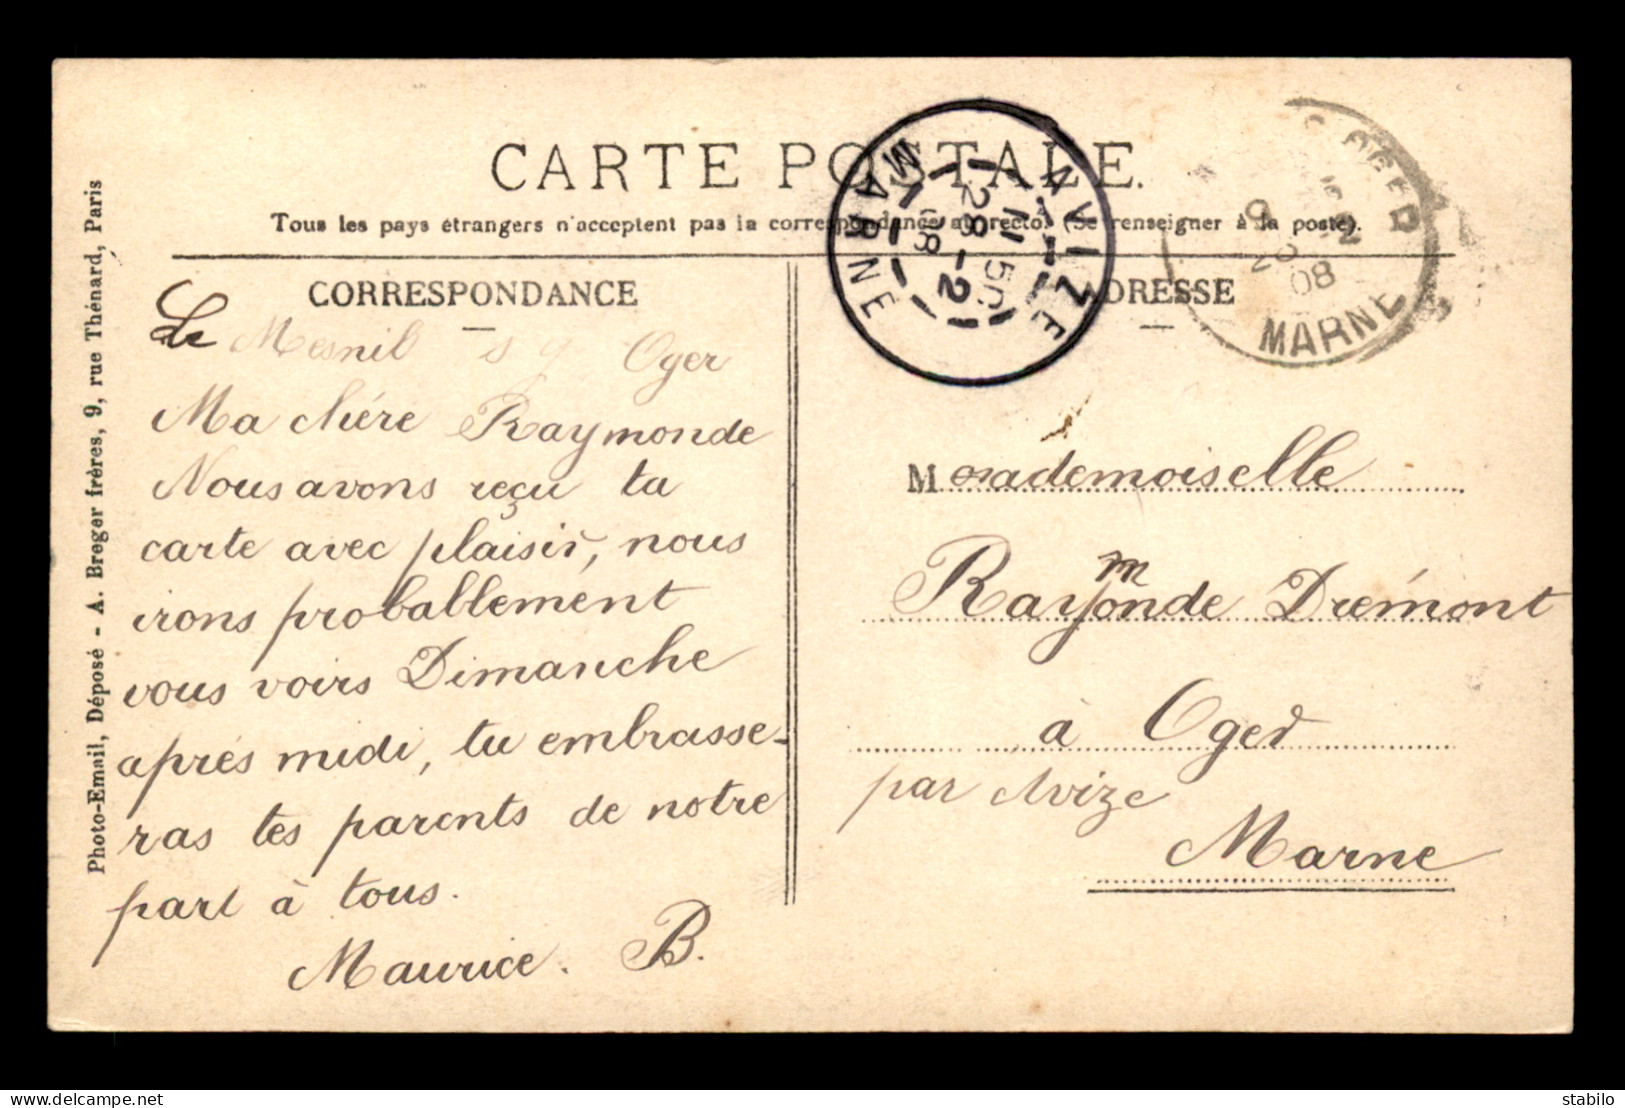 CARTE POSTALE.
Tous les pays étrangers n'acceptent pas la correspondance au recto. (Se renseigner à la poste).
CORRESPONDANCE
Le Mesnil s y Oger
Ma chère Raymonde
Nous avons reçu ta
carte avec plaisir, nous
irons proballement
vous voirs Dimanche
après midi, tu embrasse-
ras tes parents de notre
part à tous.
Maurice. B.
ADRESSE
Mademoiselle
Raymonde Drémont
à Oger
par Avize
Marne
AVIZE
11 50
28 - 2
08
MARNE
OGER
08
MARNE
Photo-Email, Déposé - A. Breger frères, 9, rue Thénard, Paris
delcampe.net
stabilo